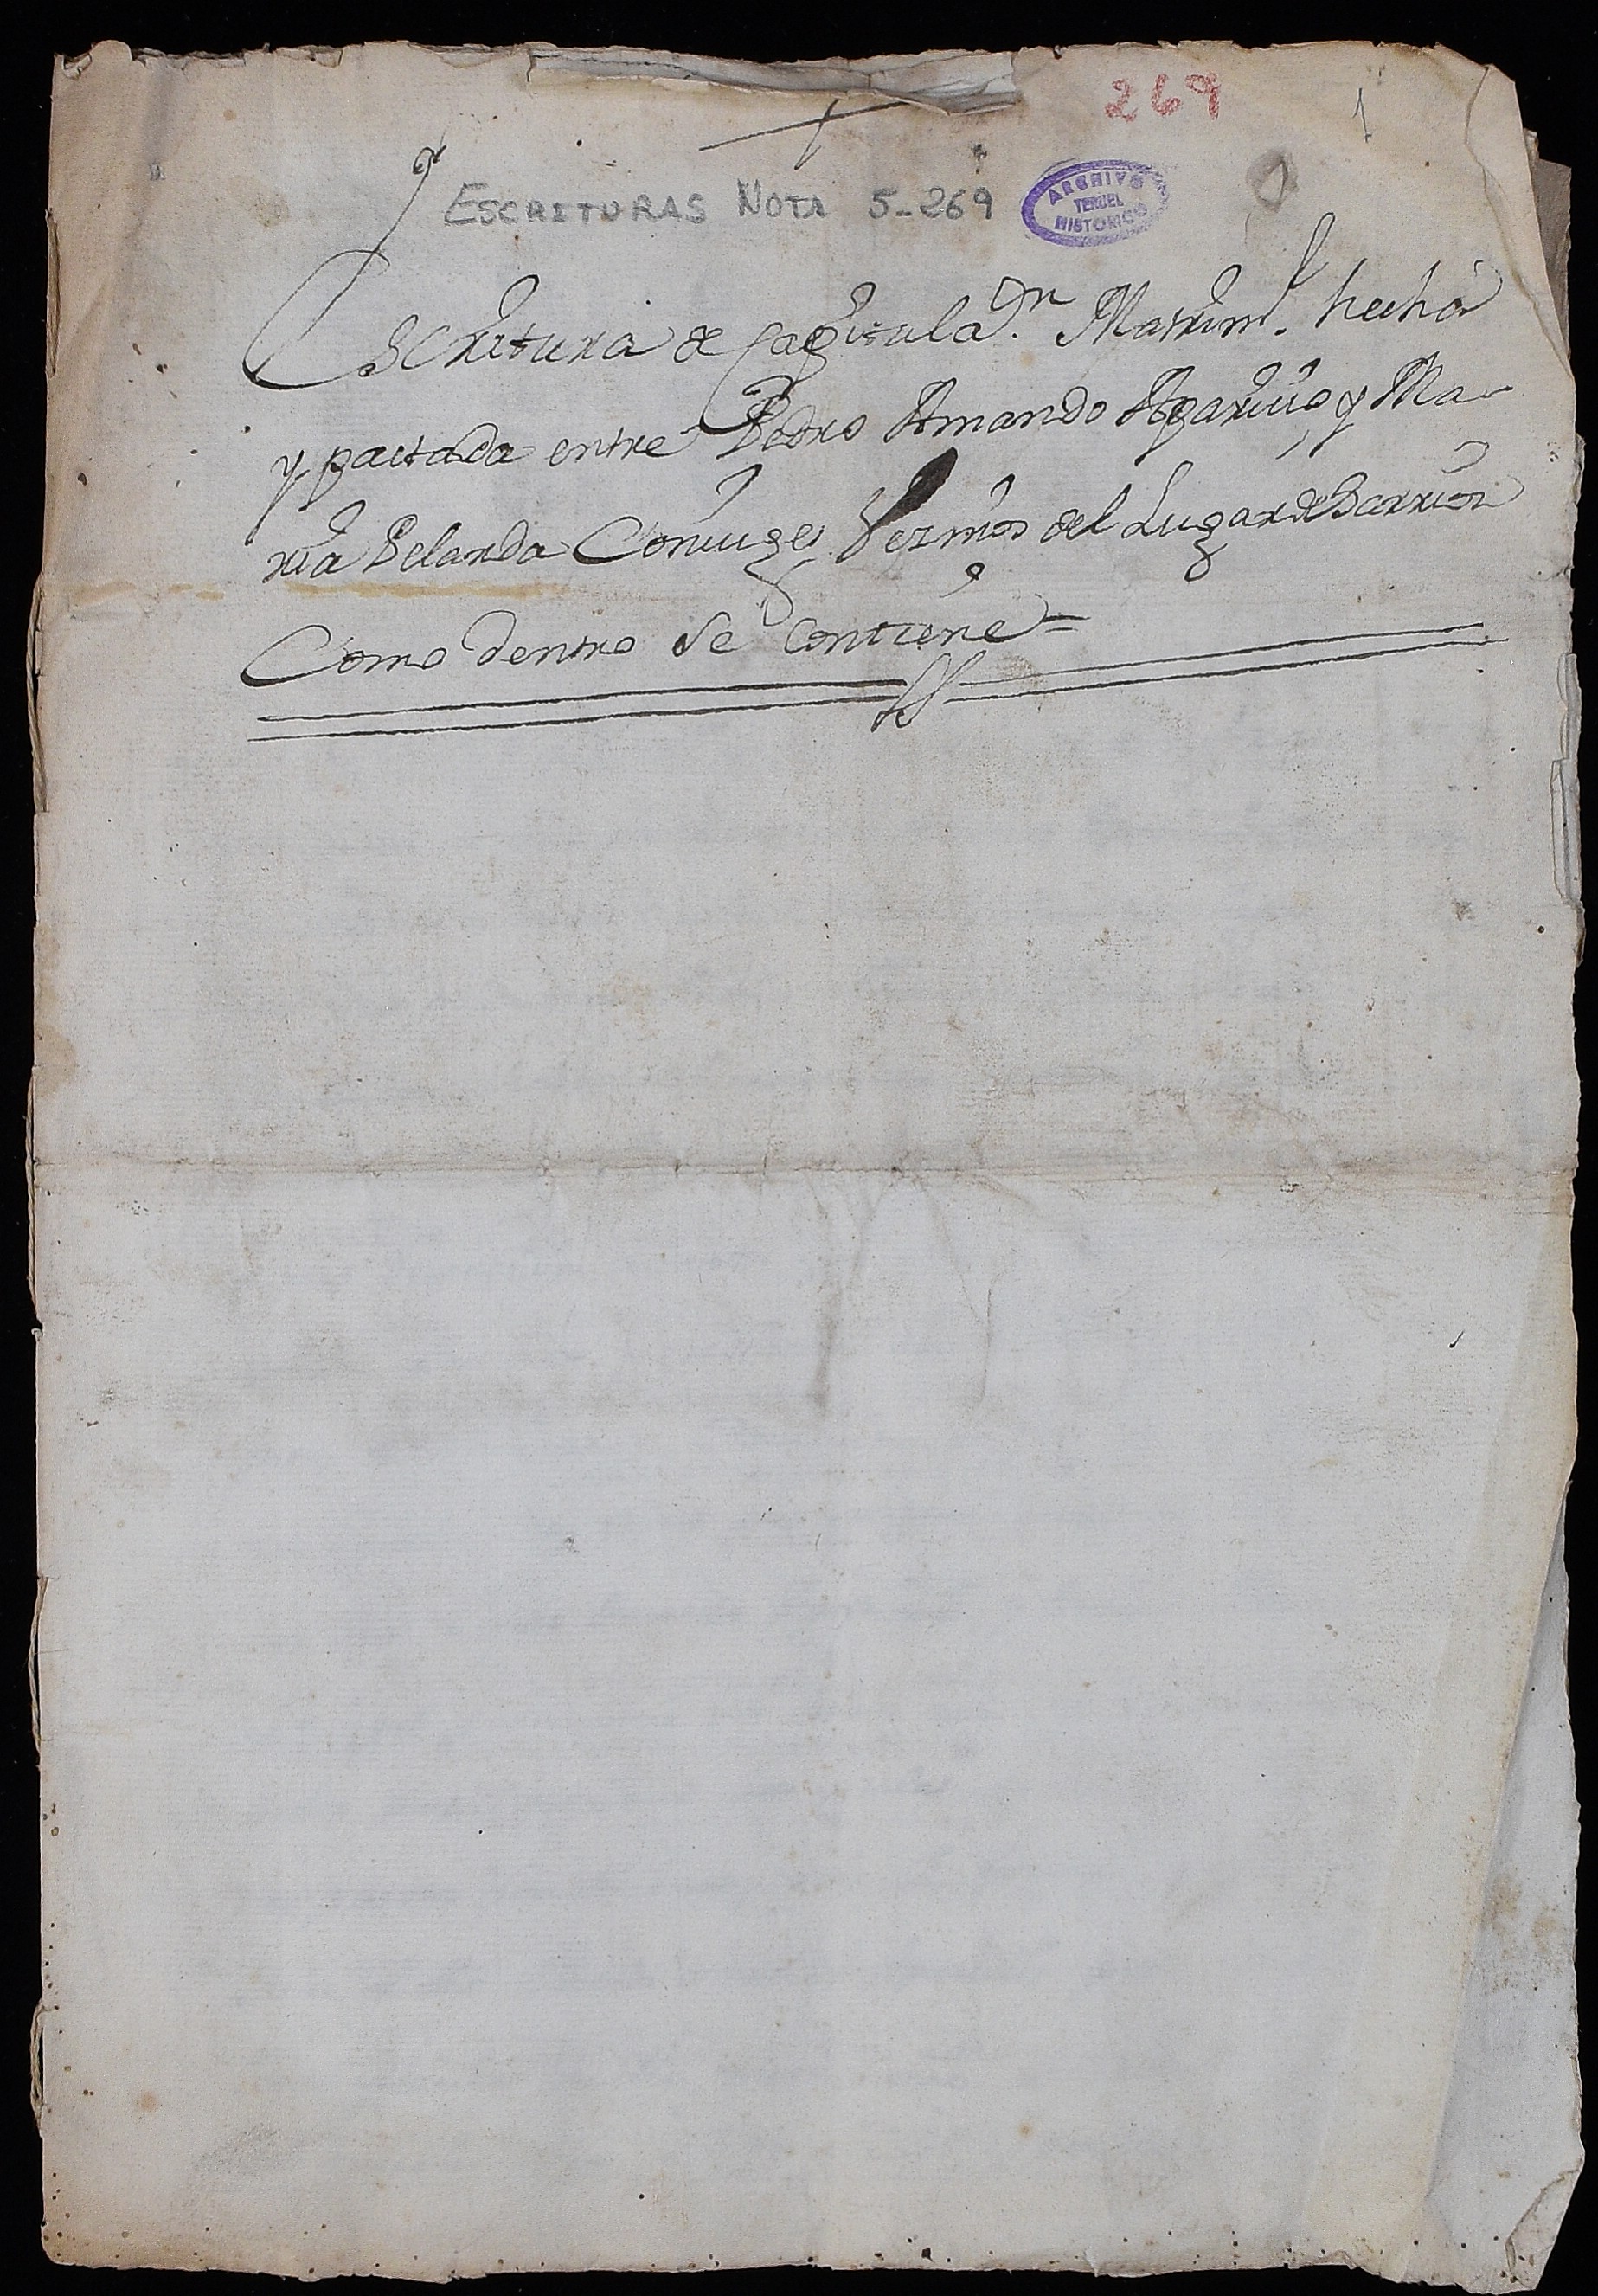 269
1
ESCRITURAS NOTA 5-269
ARCHIVO
TERUEL
HISTORICO
Escritura de Capitula.on Matrim.l hecha
y pactada entre Pedro Amando Aparicio y Ma-
ria Belanda Coniuges Vezinos del Lugar de Sarrion
Como dentro se contiene=